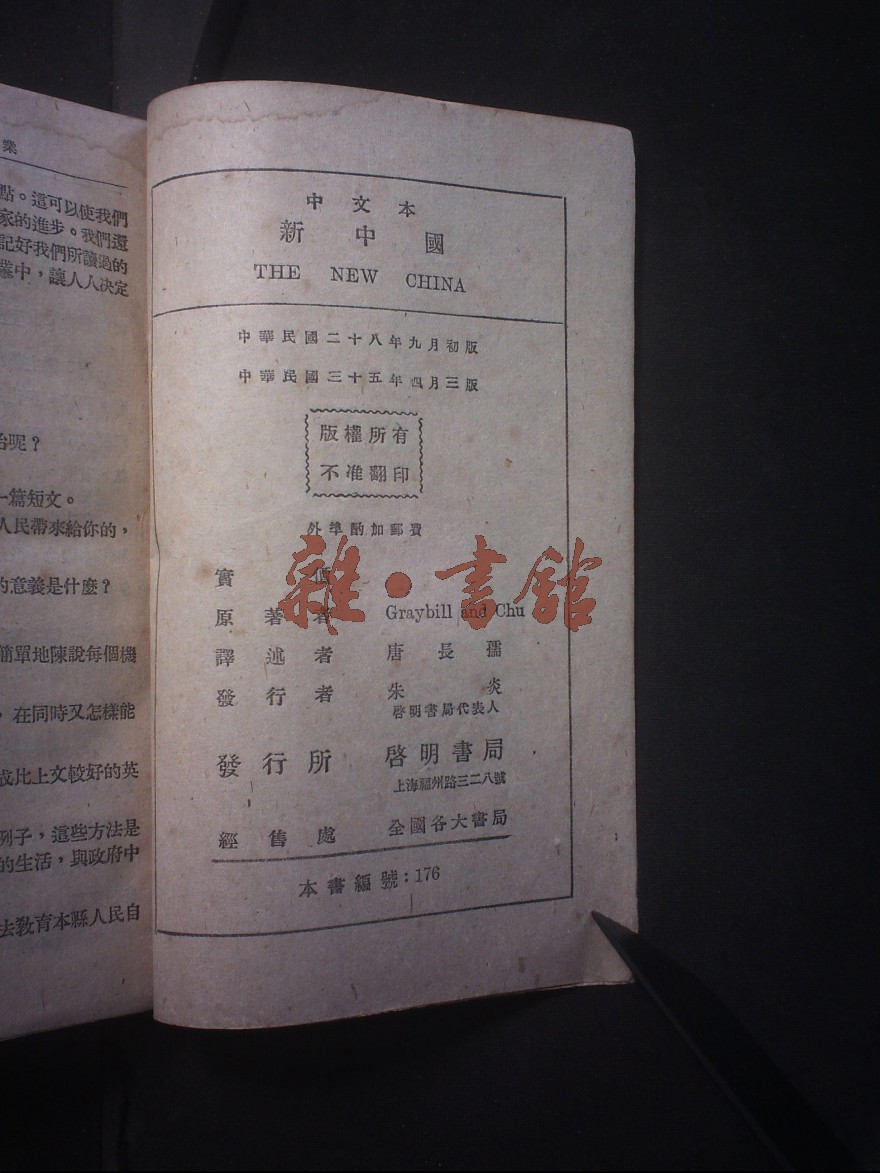 業
點。這可以使我們
家的進步。我們還
記好我們所讀過的
業中，讓人人決定
治呢？
一篇短文。
人民帶來給你的，
的意義是什麼？
簡單地陳說每個機
，在同時又怎樣能
成比上文較好的英
例子，這些方法是
的生活，與政府中
法教育本縣人民自
中文本
新中國
THE NEW CHINA
中華民國二十八年九月初版
中華民國三十五年四月三版
版權所有
不准翻印
外埠酌加郵費
實價
原著者 Graybill and Chu
譯述者 唐長孺
發行者 朱炎
啓明書局代表人
發行所 啓明書局
上海福州路三二八號
經售處 全國各大書局
本書編號：176
雜·書館